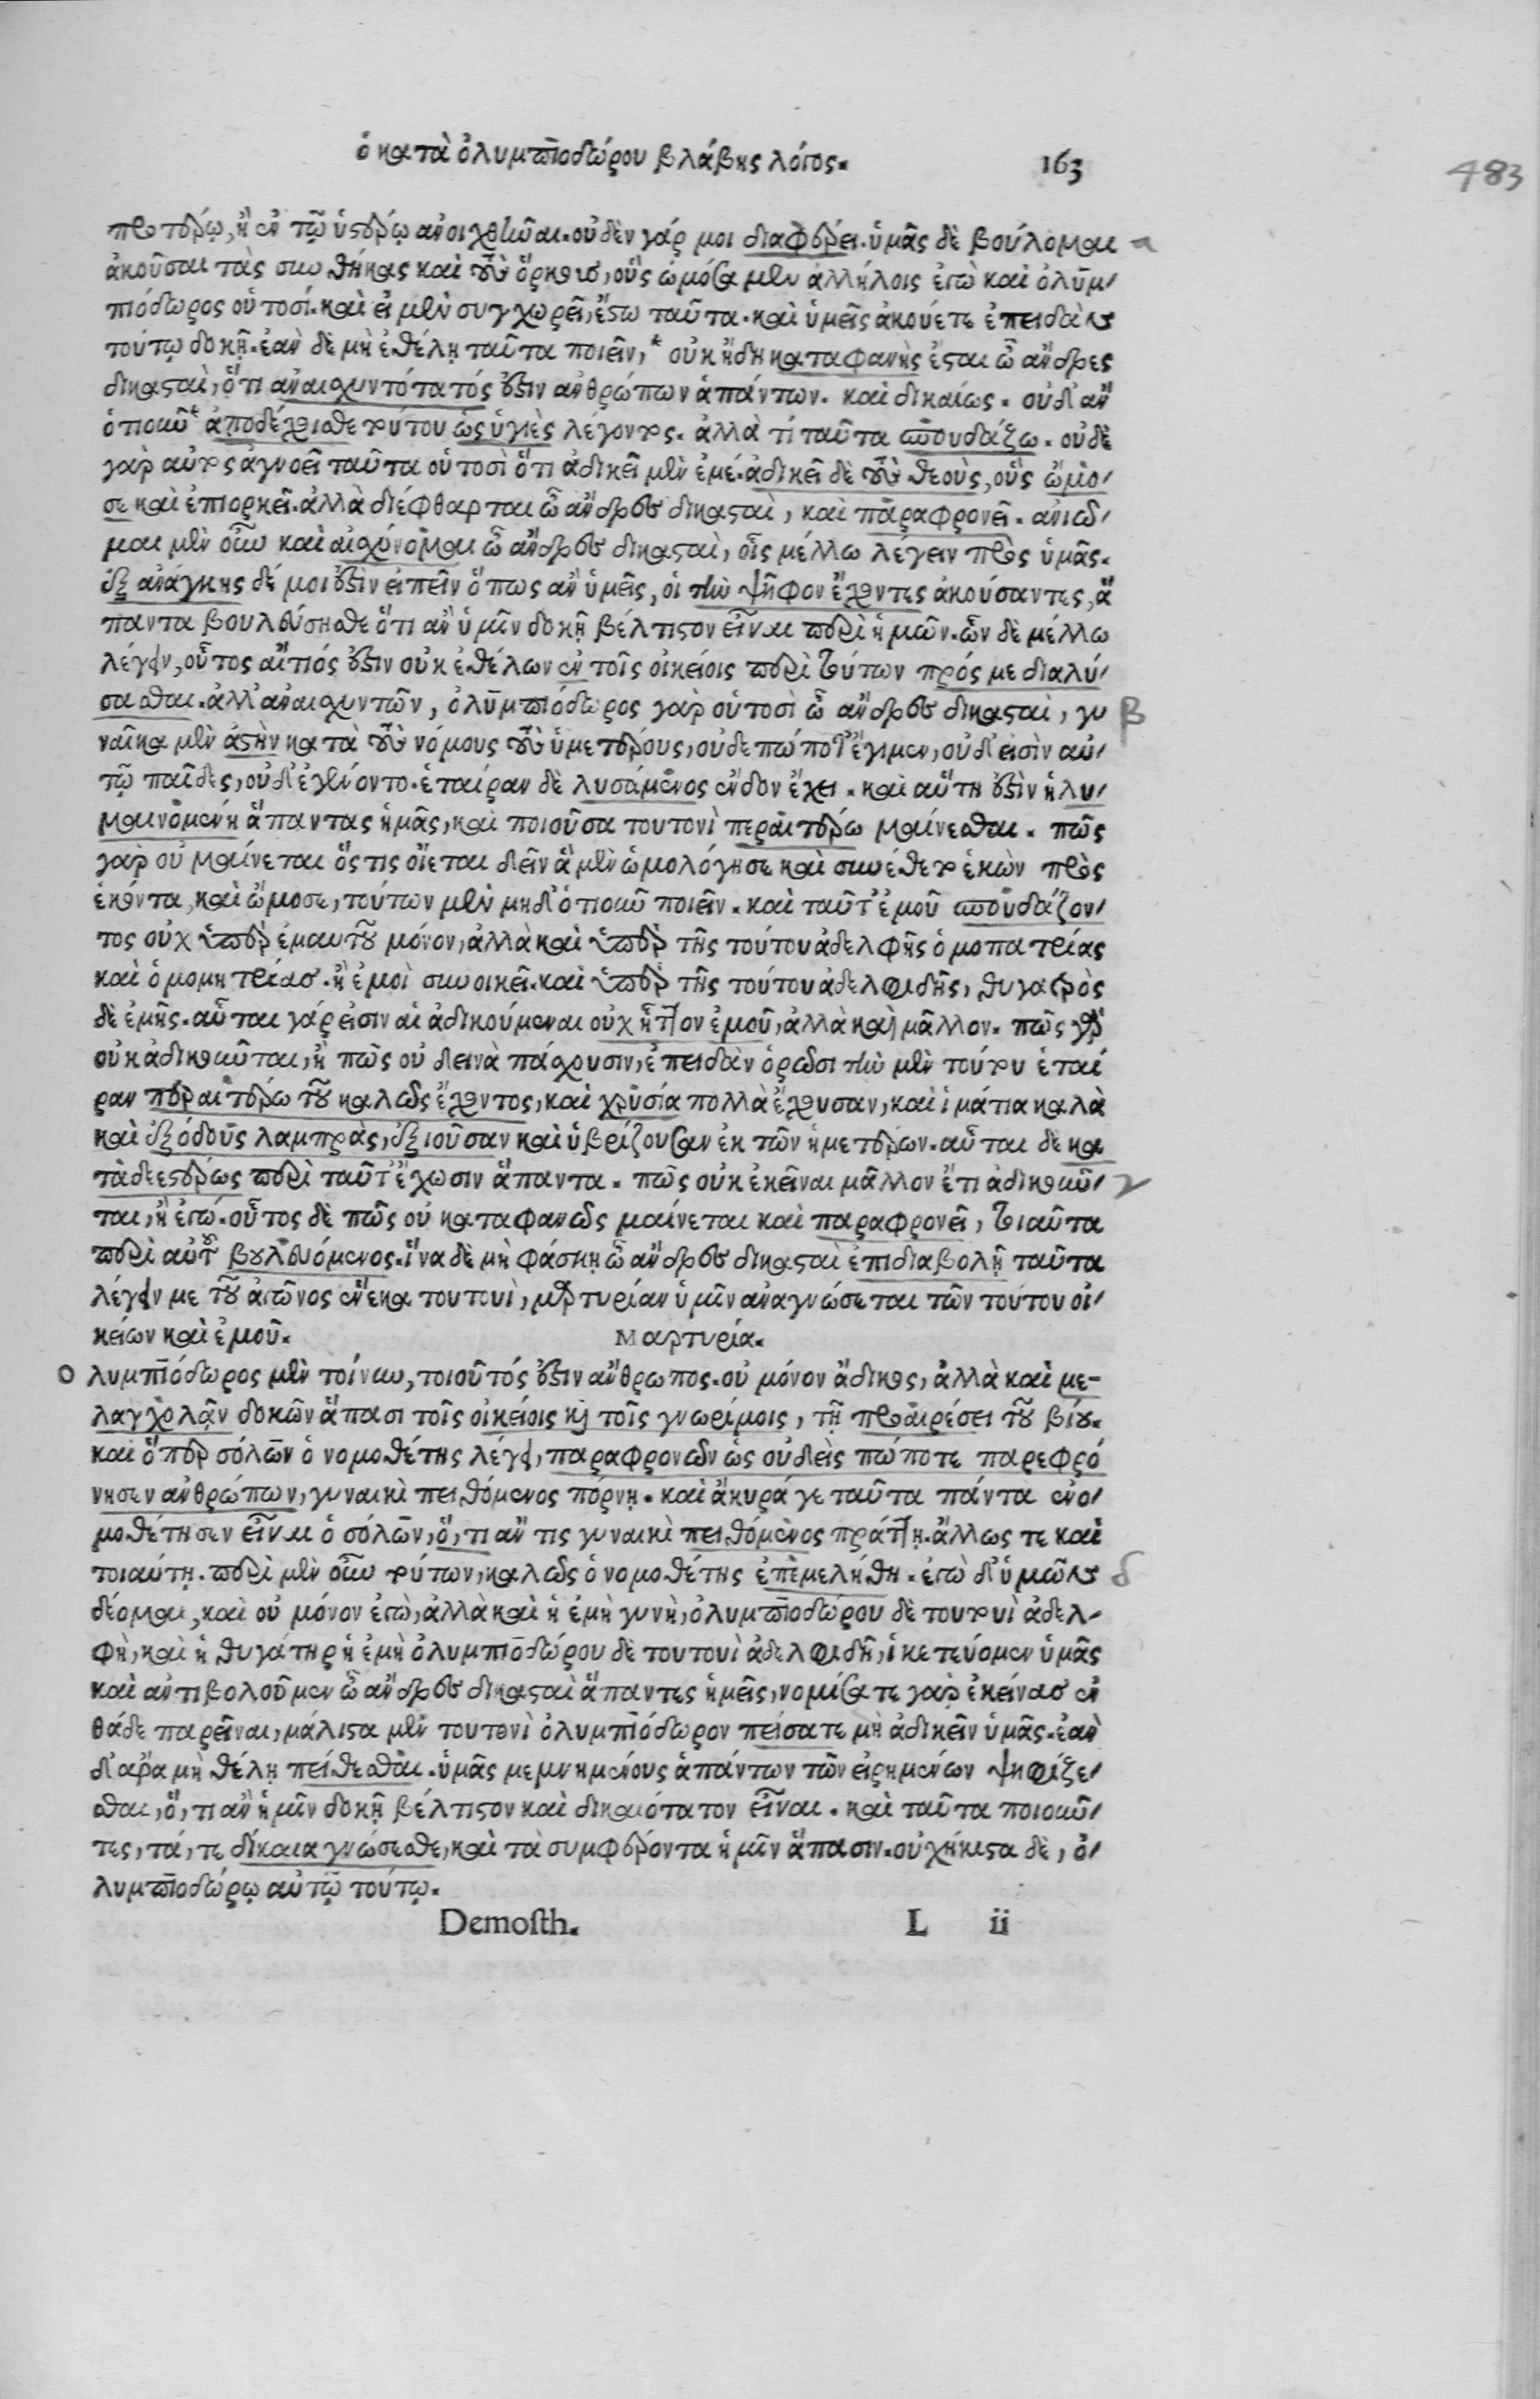 ὁ κατὰ ὀλυμπιοδώρου βλάβης λόγος. 163
483
προτέρῳ, ἢ ἐν τῷ ὑστέρῳ ἀνοιχθῆναι. οὐδὲν γάρ μοι διαφέρει. ὑμᾶς δὲ βούλομαι α
ἀκοῦσαι τὰς συνθήκας καὶ τοὺς ὅρκους, οὓς ὠμόσαμεν ἀλλήλοις ἐγὼ καὶ ὀλυμ-
πιόδωρος οὑτοσί. καὶ εἰ μὲν συγχωρεῖ, ἔστω ταῦτα. καὶ ὑμεῖς ἀκούετε ἐπειδὰν
τούτῳ δοκῇ. ἐὰν δὲ μὴ ἐθέλῃ ταῦτα ποιεῖν,* οὐκ ἤδη καταφανὴς ἔσται ὦ ἄνδρες
δικασταὶ, ὅτι ἀναισχυντότατός ἐστιν ἀνθρώπων ἁπάντων. καὶ δικαίως. οὐδ' ἂν
ὁτιοῦν* ἀποδέχοισθε τούτου ὡς ὑγιὲς λέγοντος. ἀλλὰ τί ταῦτα σπουδάζω. οὐδὲ
γὰρ αὐτὸς ἀγνοεῖ ταῦτα οὑτοσὶ ὅτι ἀδικεῖ μὲν ἐμέ. ἀδικεῖ δὲ τοὺς θεοὺς, οὓς ὤμο-
σε καὶ ἐπιορκεῖ. ἀλλὰ διέφθαρται ὦ ἄνδρες δικασταὶ, καὶ παραφρονεῖ. ἀνιῶ-
μαι μὲν οὖν καὶ αἰσχύνομαι ὦ ἄνδρες δικασταὶ, οἷς μέλλω λέγειν πρὸς ὑμᾶς.
ἐξ ἀνάγκης δέ μοι ἐστὶν εἰπεῖν ὅπως ἂν ὑμεῖς, οἱ τὴν ψῆφον ἔχοντες ἀκούσαντες, ἅ
παντα βουλεύσησθε ὅτι ἂν ὑμῖν δοκῇ βέλτιστον εἶναι περὶ ἡμῶν. ὧν δὲ μέλλω
λέγειν, οὗτος αἴτιός ἐστιν οὐκ ἐθέλων ἐν τοῖς οἰκείοις περὶ τούτων πρός με διαλύ-
σασθαι. ἀλλ' ἀναισχυντῶν, ὀλυμπιόδωρος γὰρ οὑτοσὶ ὦ ἄνδρες δικασταὶ, γυ β
ναῖκα μὲν ἀστὴν κατὰ τοὺς νόμους τοὺς ὑμετέρους, οὐδεπώποτ' ἔγημεν, οὐδ' εἰσὶν αὐ-
τῷ παῖδες, οὐδ' ἐγένοντο. ἑταίραν δὲ λυσάμενος ἔνδον ἔχει. καὶ αὕτη ἐστὶν ἡ λυ-
μαινομένη ἅπαντας ἡμᾶς, καὶ ποιοῦσα τουτονὶ περαιτέρω μαίνεσθαι. πῶς
γὰρ οὐ μαίνεται ὅστις οἴεται δεῖν ἃ μὲν ὡμολόγησε καὶ συνέθετο ἑκὼν πρὸς
ἑκόντα, καὶ ὤμοσε, τούτων μὲν μηδ' ὁτιοῦν ποιεῖν. καὶ ταῦτ' ἐμοῦ σπουδάζον-
τος οὐχ ὑπὲρ ἐμαυτοῦ μόνον, ἀλλὰ καὶ ὑπὲρ τῆς τούτου ἀδελφῆς ὁμοπατρίας
καὶ ὁμομητρίας. ἣ ἐμοὶ συνοικεῖ. καὶ ὑπὲρ τῆς τούτου ἀδελφιδῆς, θυγατρὸς
δὲ ἐμῆς. αὗται γάρ εἰσιν αἱ ἀδικούμεναι οὐχ ἧττον ἐμοῦ, ἀλλὰ καὶ μᾶλλον. πῶς γὰρ
οὐκ ἀδικοῦνται, ἢ πῶς οὐ δεινὰ πάσχουσιν, ἐπειδὰν ὁρῶσι τὴν μὲν τούτου ἑταί
ραν περαιτέρω τοῦ καλῶς ἔχοντος, καὶ χρυσία πολλὰ ἔχουσαν, καὶ ἱμάτια καλὰ
καὶ ἐξόδους λαμπρὰς, ἐξιοῦσαν καὶ ὑβρίζουσαν ἐκ τῶν ἡμετέρων. αὗται δὲ κα
ταδεεστέρως περὶ ταῦτ' ἔχωσιν ἅπαντα. πῶς οὐκ ἐκεῖναι μᾶλλον ἔτι ἀδικοῦν- γ
ται, ἢ ἐγώ. οὗτος δὲ πῶς οὐ καταφανῶς μαίνεται καὶ παραφρονεῖ, τοιαῦτα
περὶ αὑτοῦ βουλευόμενος. ἵνα δὲ μὴ φάσκῃ ὦ ἄνδρες δικασταὶ ἐπιδιαβολῇ ταῦτα
λέγειν με τοῦ ἀγῶνος ἕνεκα τουτουὶ, μαρτυρίαν ὑμῖν ἀναγνώσεται τῶν τούτου οἰ-
κείων καὶ ἐμοῦ. Μαρτυρία.
ολυμπιόδωρος μὲν τοίνυν, τοιοῦτός ἐστιν ἄνθρωπος. οὐ μόνον ἄδικος, ἀλλὰ καὶ με-
λαγχολᾷν δοκῶν ἅπασι τοῖς οἰκείοις καὶ τοῖς γνωρίμοις, τῇ προαιρέσει τοῦ βίου.
καὶ ὅπερ σόλων ὁ νομοθέτης λέγει, παραφρονῶν ὡς οὐδεὶς πώποτε παρεφρό
νησεν ἀνθρώπων, γυναικὶ πειθόμενος πόρνῃ. καὶ ἄκυρά γε ταῦτα πάντα ἐνο-
μοθέτησεν εἶναι ὁ σόλων, ὅ, τι ἄν τις γυναικὶ πειθόμενος πράττῃ. ἄλλως τε καὶ
τοιαύτῃ. περὶ μὲν οὖν τούτων, καλῶς ὁ νομοθέτης ἐπεμελήθη. ἐγὼ δ' ὑμῶν δ
δέομαι, καὶ οὐ μόνον ἐγὼ, ἀλλὰ καὶ ἡ ἐμὴ γυνὴ, ὀλυμπιοδώρου δὲ τουτουὶ ἀδελ-
φὴ, καὶ ἡ θυγάτηρ ἡ ἐμὴ ὀλυμπιοδώρου δὲ τουτουὶ ἀδελφιδῆ, ἱκετεύομεν ὑμᾶς
καὶ ἀντιβολοῦμεν ὦ ἄνδρες δικασταὶ ἅπαντες ἡμεῖς, νομίσατε γὰρ ἐκείνας ἐν
θάδε παρεῖναι, μάλιστα μὲν τουτονὶ ὀλυμπιόδωρον πείσατε μὴ ἀδικεῖν ὑμᾶς. ἐὰν
δ' ἄρα μὴ θέλῃ πείθεσθαι. ὑμᾶς μεμνημένους ἁπάντων τῶν εἰρημένων ψηφίζε-
σθαι, ὅ, τι ἂν ἡμῖν δοκῇ βέλτιστον καὶ δικαιότατον εἶναι. καὶ ταῦτα ποιοῦν-
τες, τά, τε δίκαια γνώσεσθε, καὶ τὰ συμφέροντα ἡμῖν ἅπασιν. οὐχήκιστα δὲ, ὀ-
λυμπιοδώρῳ αὐτῷ τούτῳ.
Demosth. L ii